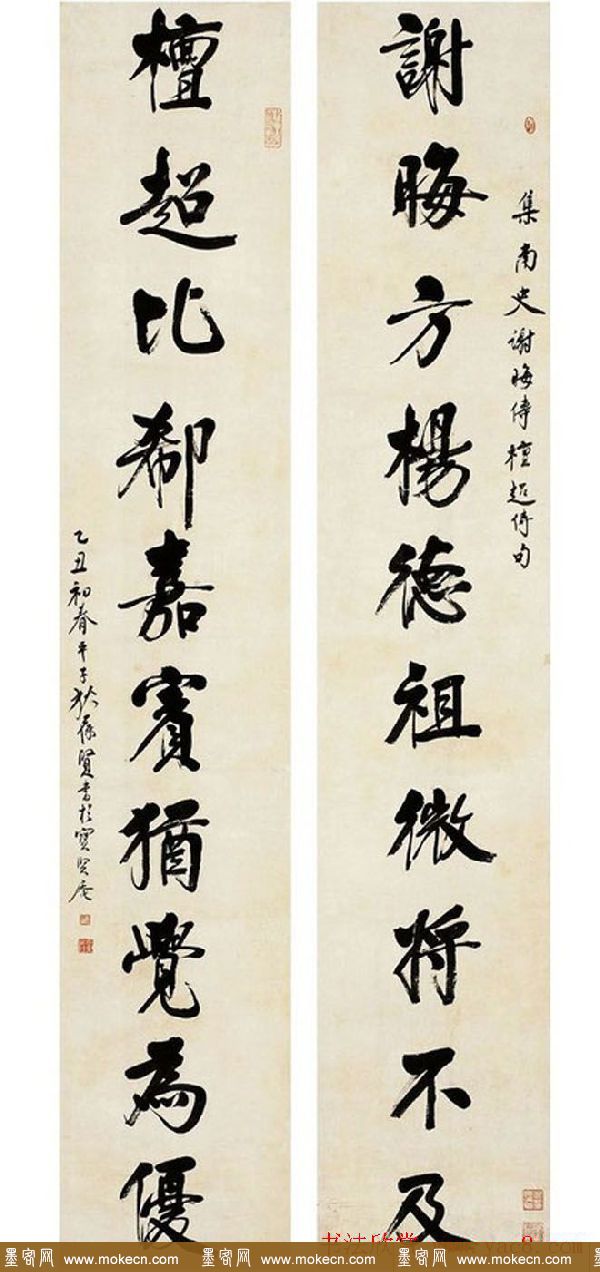 集南史謝晦傳檀超傳句
謝晦方楊德祖微將不及
檀超比郗嘉賓猶覺為優
乙丑初春平子狄葆賢書於寶賢庵
书法欣赏
墨客网 www.mokecn.com 墨客网 www.mokecn.com 墨客网 www.mokecn.com 墨客网